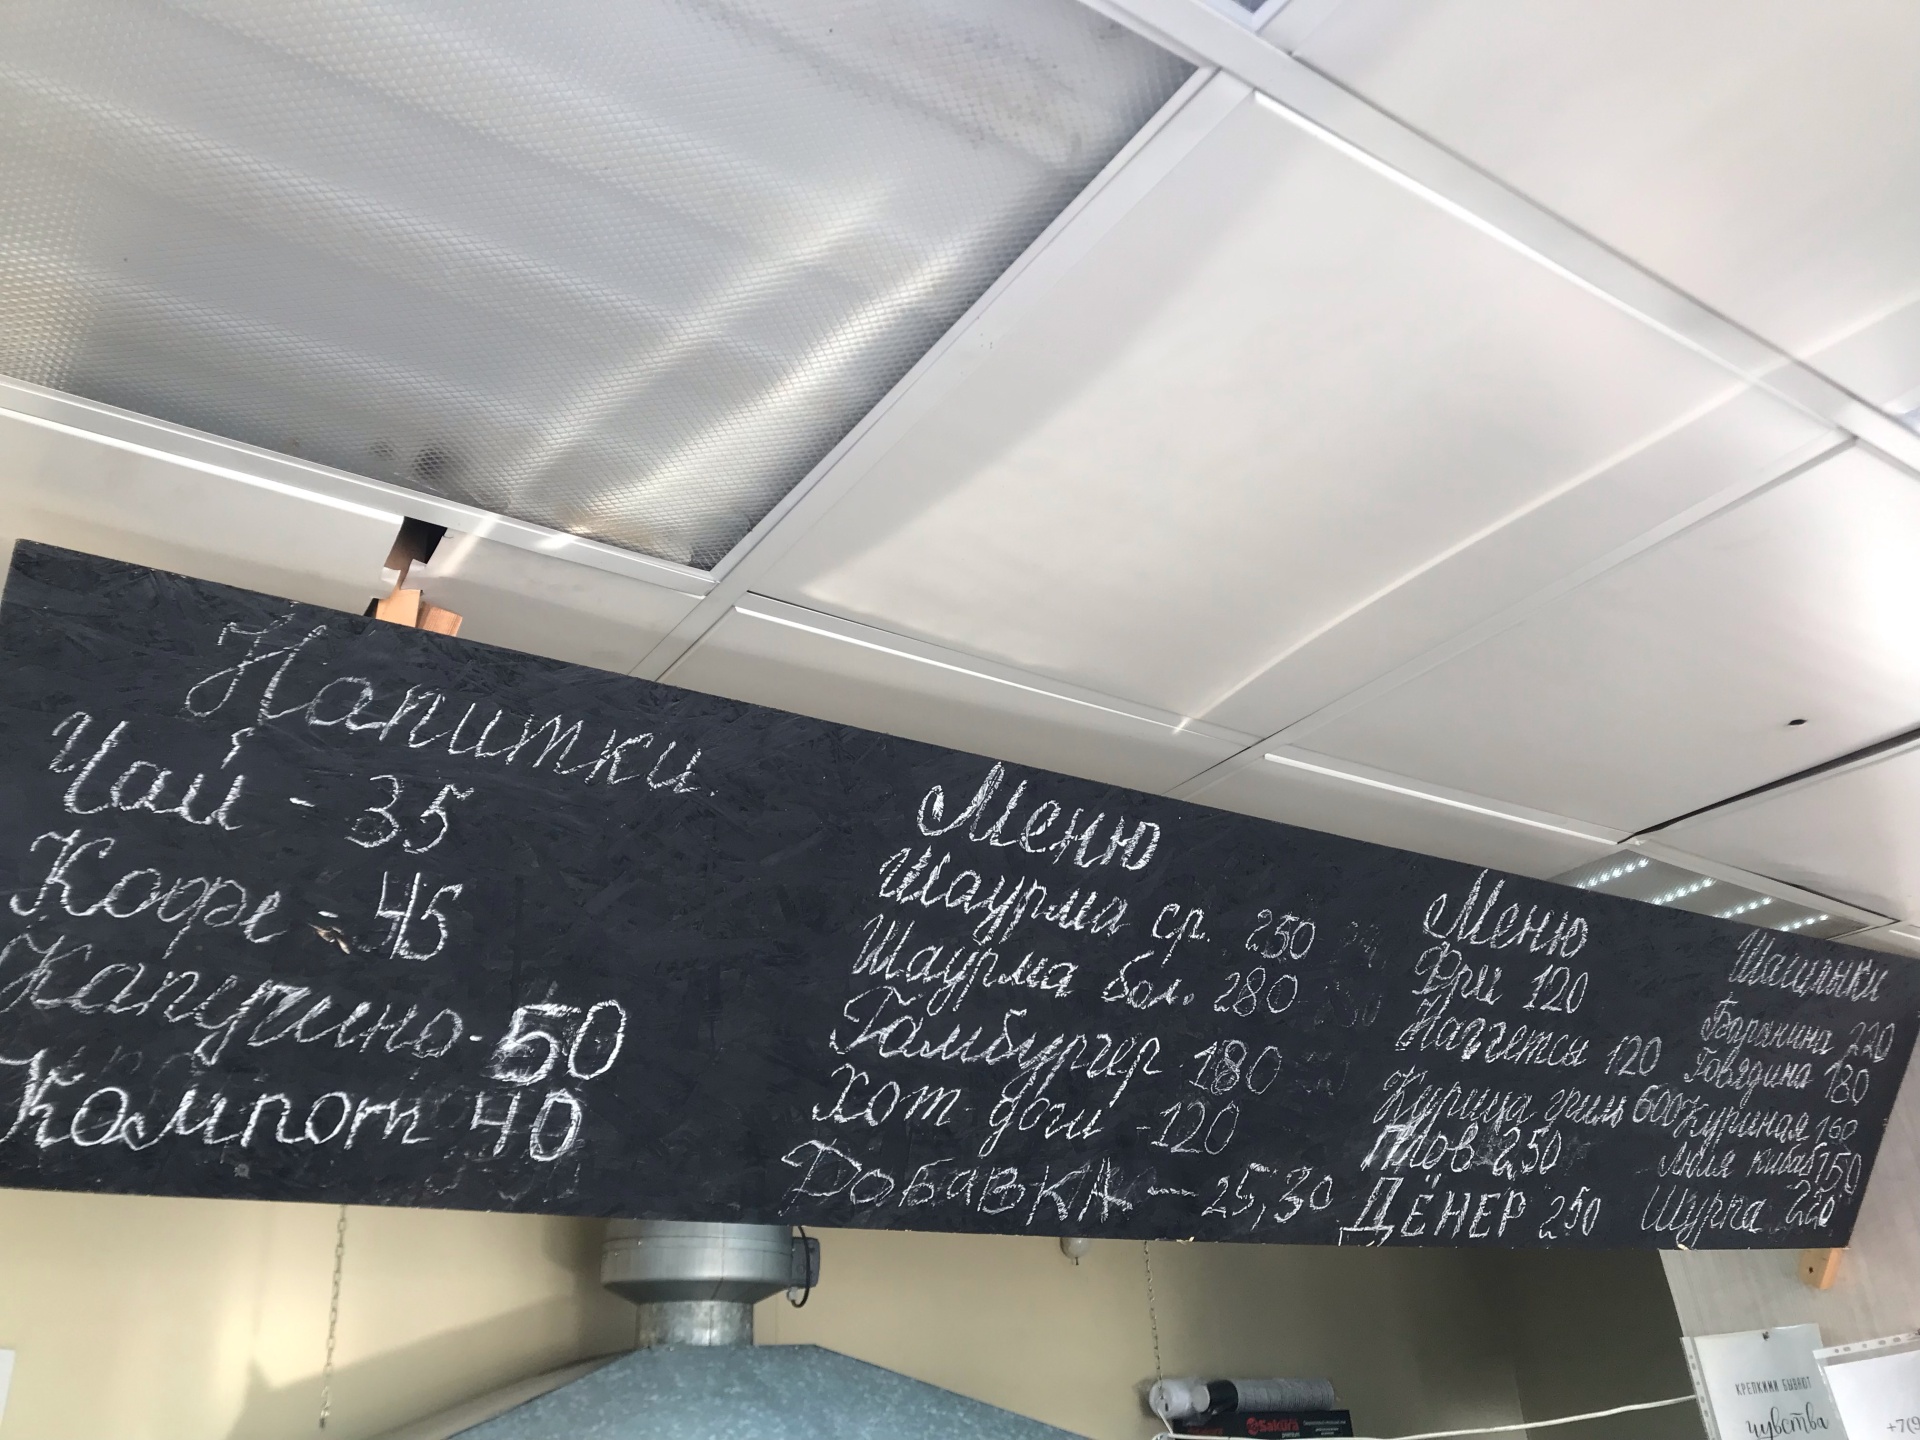 Напитки
Чай - 35
Кофе - 45
Капучино - 50
Компот 40
Меню
Шаурма ср. 250
Шаурма бол. 280
Гамбургер 180
Хот доги - 120
ДобавкА — 25,30
Меню
Фри 120
Наггетсы 120
Курица гриль 600
Плов 250
ДЁНЕР 250
Шашлыки
Баранина 220
Говядина 180
Куриная 160
Люля кибаб 150
Шурпа 220
Sakura
КРЕПКИМИ БЫВАЮТ
чувства
+7(9